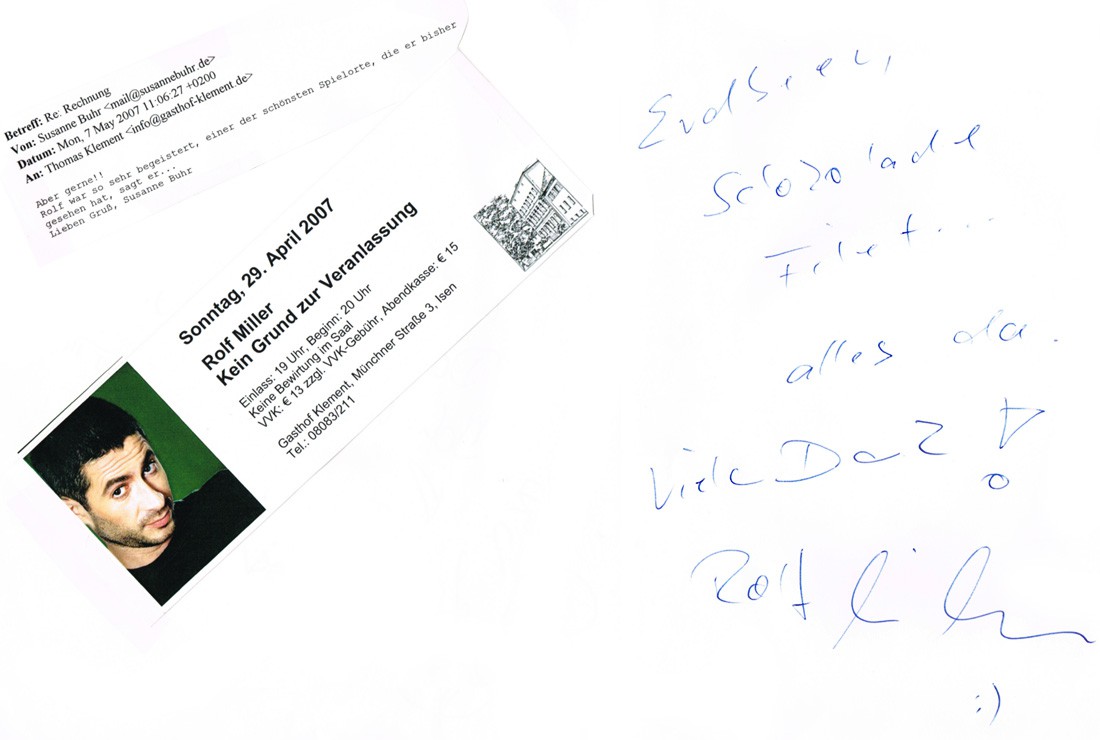 Betreff: Re: Rechnung
Von: Susanne Buhr <mail@susannebuhr.de>
Datum: Mon, 7 May 2007 11:06:27 +0200
An: Thomas Klement <info@gasthof-klement.de>
Aber gerne!!
Rolf war so sehr begeistert, einer der schönsten Spielorte, die er bisher
gesehen hat, sagt er...
Lieben Gruß, Susanne Buhr
Sonntag, 29. April 2007
Rolf Miller
Kein Grund zur Veranlassung
Einlass: 19 Uhr, Beginn: 20 Uhr
Keine Bewirtung im Saal
VVK: € 13 zzgl. VVK-Gebühr, Abendkasse: € 15
Gasthof Klement, Münchner Straße 3, Isen
Tel.: 08083/211
Erdbeer,
Schokolade
Filet...
alles da.
Vielen Dank!
Rolf Miller
:)